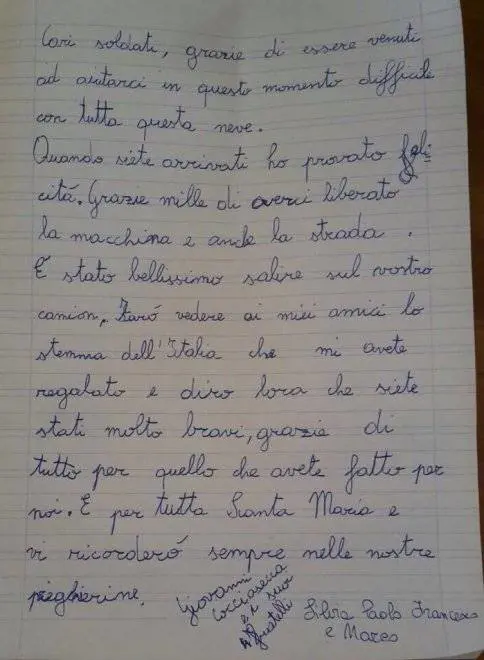 Cari soldati, grazie di essere venuti
ad aiutarci in questo momento difficile
con tutta questa neve.
Quando siete arrivati ho provato feli=
citá. Grazie mille di averci liberato
la macchina e anche la strada.
É stato bellissimo salire sul vostro
camion, Faró vedere ai miei amici lo
stemma dell'Italia che mi avete
regalato e diro loro che siete
stati molto bravi, grazie di
tutto per quello che avete fatto per
noi. E per tutta Santa Maria e
vi ricorderó sempre nelle nostre
preghierine.
Giovanni
e i suoi
fratelli
Silvia Paolo Francesco
e Marco